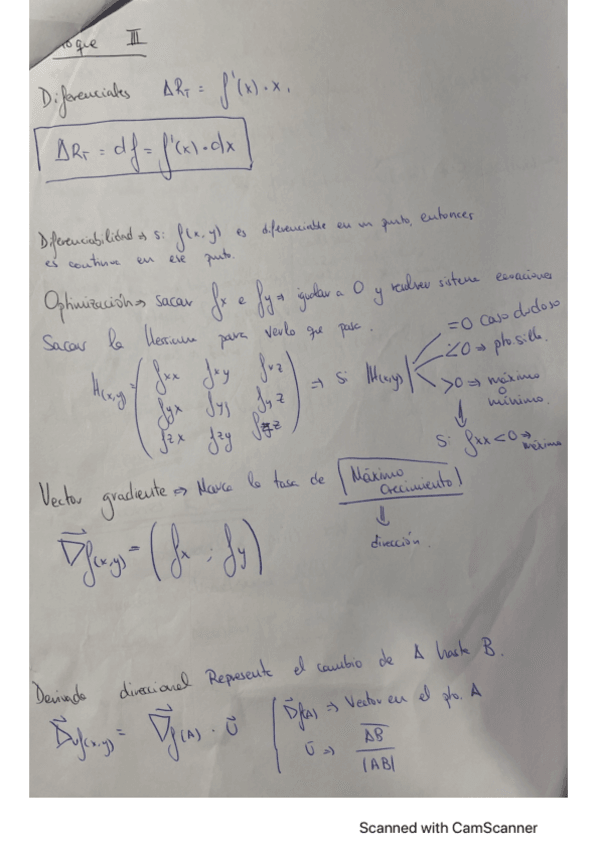 oque III
Diferenciales ΔR_T = f'(x) · x.
ΔR_T = df = f'(x) · dx
Diferenciabilidad ⇒ si f(x,y) es diferenciable en un punto, entonces
es continua en ese punto.
Optimización ⇒ sacar fx e fy ⇒ igualar a 0 y resolver sistema ecuaciones
Sacar la Hessiana para verlo que pasa.
H(x,y) = ( fxx fxy fxz
fyx fyy fyz
fzx fzy fzz ) ⇒ Si |H(x,y)|
=0 Caso dudoso
<0 ⇒ pto. silla.
>0 ⇒ máximo
o
mínimo.
↓
Si fxx<0 ⇒ máximo
Vector gradiente ⇒ Marca la tasa de Máximo
Crecimiento
↓
dirección.
∇f(x,y) = (fx ; fy)
Derivada direccional Representa el cambio de A hasta B.
Duf(x,y) = ∇f(A) · U
∇f(A) ⇒ Vector en el pto. A
U ⇒ AB
|AB|
Scanned with CamScanner